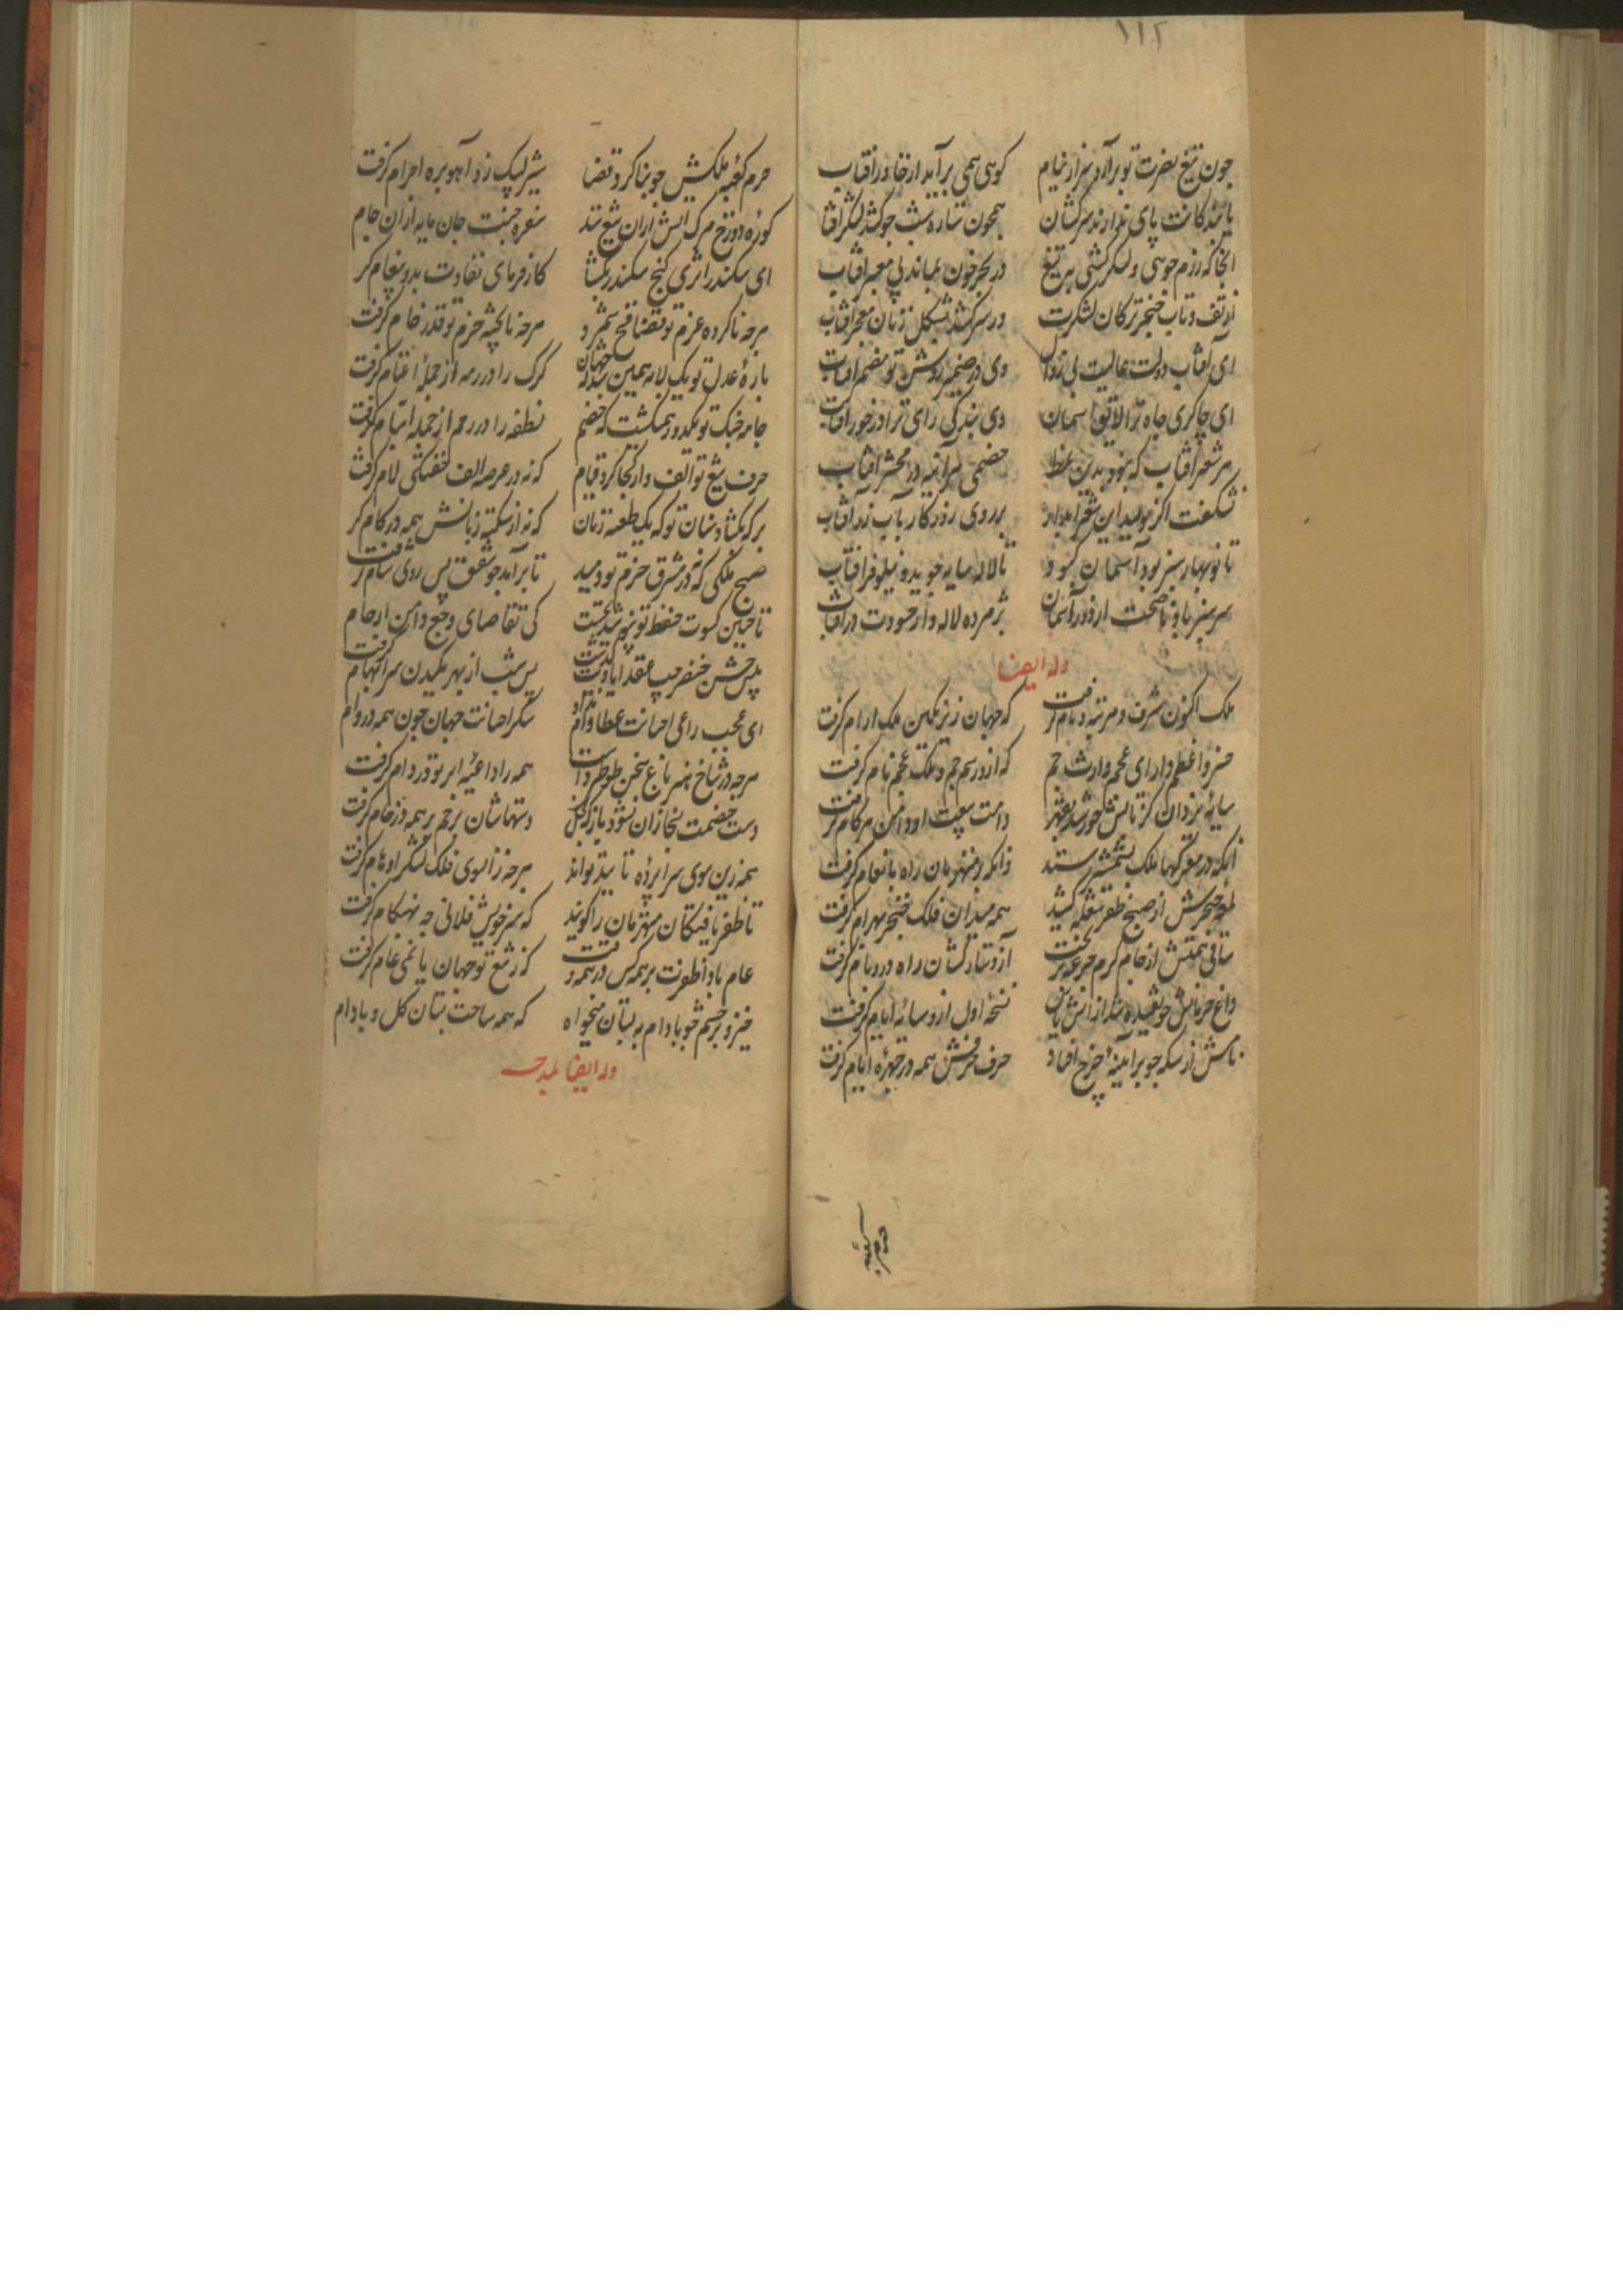 ۱۱۲
چون تیغ نصرت تو برآرد سر از نیام کوهی همی برآید از خاور آفتاب
پای ندارند سرکشان همچون ستاره شب چو کشد لشکر آفتاب
آنجا که رزم جویی و لشکر کشی به تیغ در بحر خون بماند بی معبر آفتاب
از تف و تاب خنجر ترکان لشکرت در سر کشد بشکل زنان معجر آفتاب
ای آفتاب دولت عالیت بی زوال وی در ضمیر روشن تو مضمر آفتاب
ای چاکری جاه ترا لایق آسمان وی بندگی رای ترا درخور آفتاب
هر شعر آفتاب که نبود بدین خصمی هر آینه در محشر آفتاب
شکفت اگر نویسد این شعر آبدار بر روی روزگار بآب زر آفتاب
تا نوبهار سبز بود آسمان کبود تا لاله سایه جوید و نیلوفر آفتاب
سرسبز باد ناصحت از دور آسمان پژمرده لاله وار حسودت در آفتاب
وله ایضا
ملک اکنون شرف و مرتبه و نام گرفت که جهان زیر نگین ملک آرام گرفت
خسرو اعظم دارای عجم وارث جم که ازو رسم جم و ملک عجم نام گرفت
سایه یزدان کز تابش خورشید دامن بیعت او دامن هر کام گرفت
آنکه در معرکها ملک بشمشیر ستد وانکه بر منهزمان راه بانعام گرفت
لمعه خنجرش از صبح ظفر شعله کشید همه میدان فلک خنجر بهرام گرفت
ساقی همتش از جام کرم جرعه بریخت آز دستارکشان راه در و بام گرفت
داغ فرمانش چو نسخه اول ازو سایه ایام گرفت
نامش از سکه چو بر آینه چرخ افتاد حرف حرفش همه در چهره ایام گرفت
حرم کعبه
حرم کعبه ملکش چو بنا کرد قضا شیر لبیک زد آهوبره احرام گرفت
کوره دوزخ مرگ آتش ازان تیغ ستد سفره جنت جان مایه ازان جام
ای سکندر اثری گنج سکندر بگشا
هرچه ناکرده عزم تو قضا فسخ شمرد هرچه ناپخته حزم تو قدر خام گرفت
باره عدل تو یک لابه همین جهان گرگ را در رمه از جمله اغنام گرفت
جامه جنگ تو یکدور همی که خصم نطفه را در رحم از جمله ایتام گرفت
حرف تیغ تو الف وار کجا کرد قیام که نه در عرصه الف خفتگی لام گرفت
هر که بگشاد سنان تو که یک طعنه زبان که نه از سکته زبانش همه در کام گرفت
صبح ملکی که نه در مشرق حزم تو دمید تا برآمد چو شفق پس روی شام گرفت
تا جنین کسوت حفظ تو کی تقاضای وجع دامن ارحام
پس شب از بهر سر ابهام گرفت
ای عجب داعی احسانت عطا وام شکر احسانت جهان چون همه در وام
هرچه در شاخ هنر باغ سخن طوطی داشت همه را داعیه ابر تو در دام گرفت
دست خصمت دستهاشان برخم بر همه در خام گرفت
همه زین سوی سراپرده تایید تواند هرچه زانسوی فلک لشکر اوهام گرفت
تا ظفر یافتگان منهزمان را گویند که سر خویش فلانی چه بهنگام گرفت
عام باد از ظفرت بر همه کس که ز تیغ تو جهان عام گرفت
خیز و بر چشم چو بادام به بستان می خواه که همه ساحت بستان گل و بادام
وله ایضا بمدحه